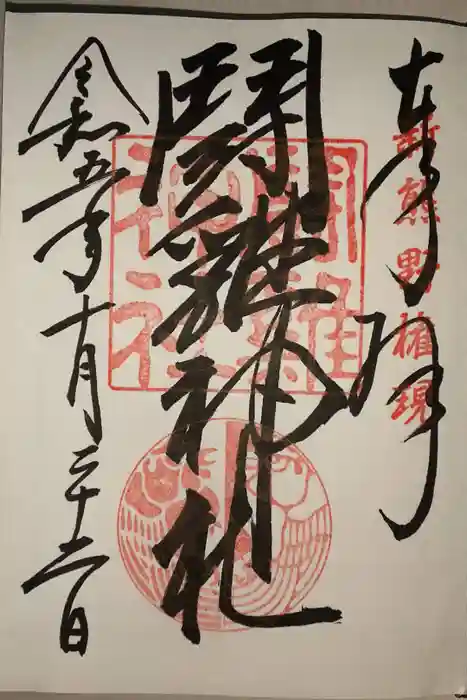 奉拝
新熊野権現
闘雞神社
闘雞
神社
令和五年十月二十二日